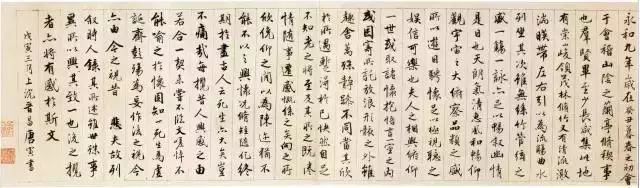 永和九年歲在癸丑暮春之初會
于會稽山陰之蘭亭脩稧事
也群賢畢至少長咸集此地
有崇峻領茂林脩竹又有清流激
湍暎帶左右引以為流觴曲水
列坐其次雖無絲竹管弦之
盛一觴一詠亦足以暢叙幽情
是日也天朗氣清惠風和暢仰
觀宇宙之大俯察品類之盛
所以遊目騁懷足以極視聽之
娛信可樂也夫人之相與俯仰
一世或取諸懷抱悟言一室之內
或因寄所託放浪形骸之外雖
趣舍萬殊靜躁不同當其欣
於所遇暫得於己快然自足
不知老之將至及其所之既惓
情隨事遷感慨係之矣向之所
欣俛仰之間以為陳迹猶不
能不以之興懷況脩短隨化終
期於盡古人云死生亦大矣豈
不痛哉每攬昔人興感之由
若合一契未嘗不臨文嗟悼不
能喻之於懷固知一死生為虛
誕齊彭殤為妄作後之視今
亦由今之視昔 悲夫故列
叙時人錄其所述雖世殊事
異所以興懷其致一也後之攬
者亦將有感於斯文
戊寅三月上浣晉昌唐寅書